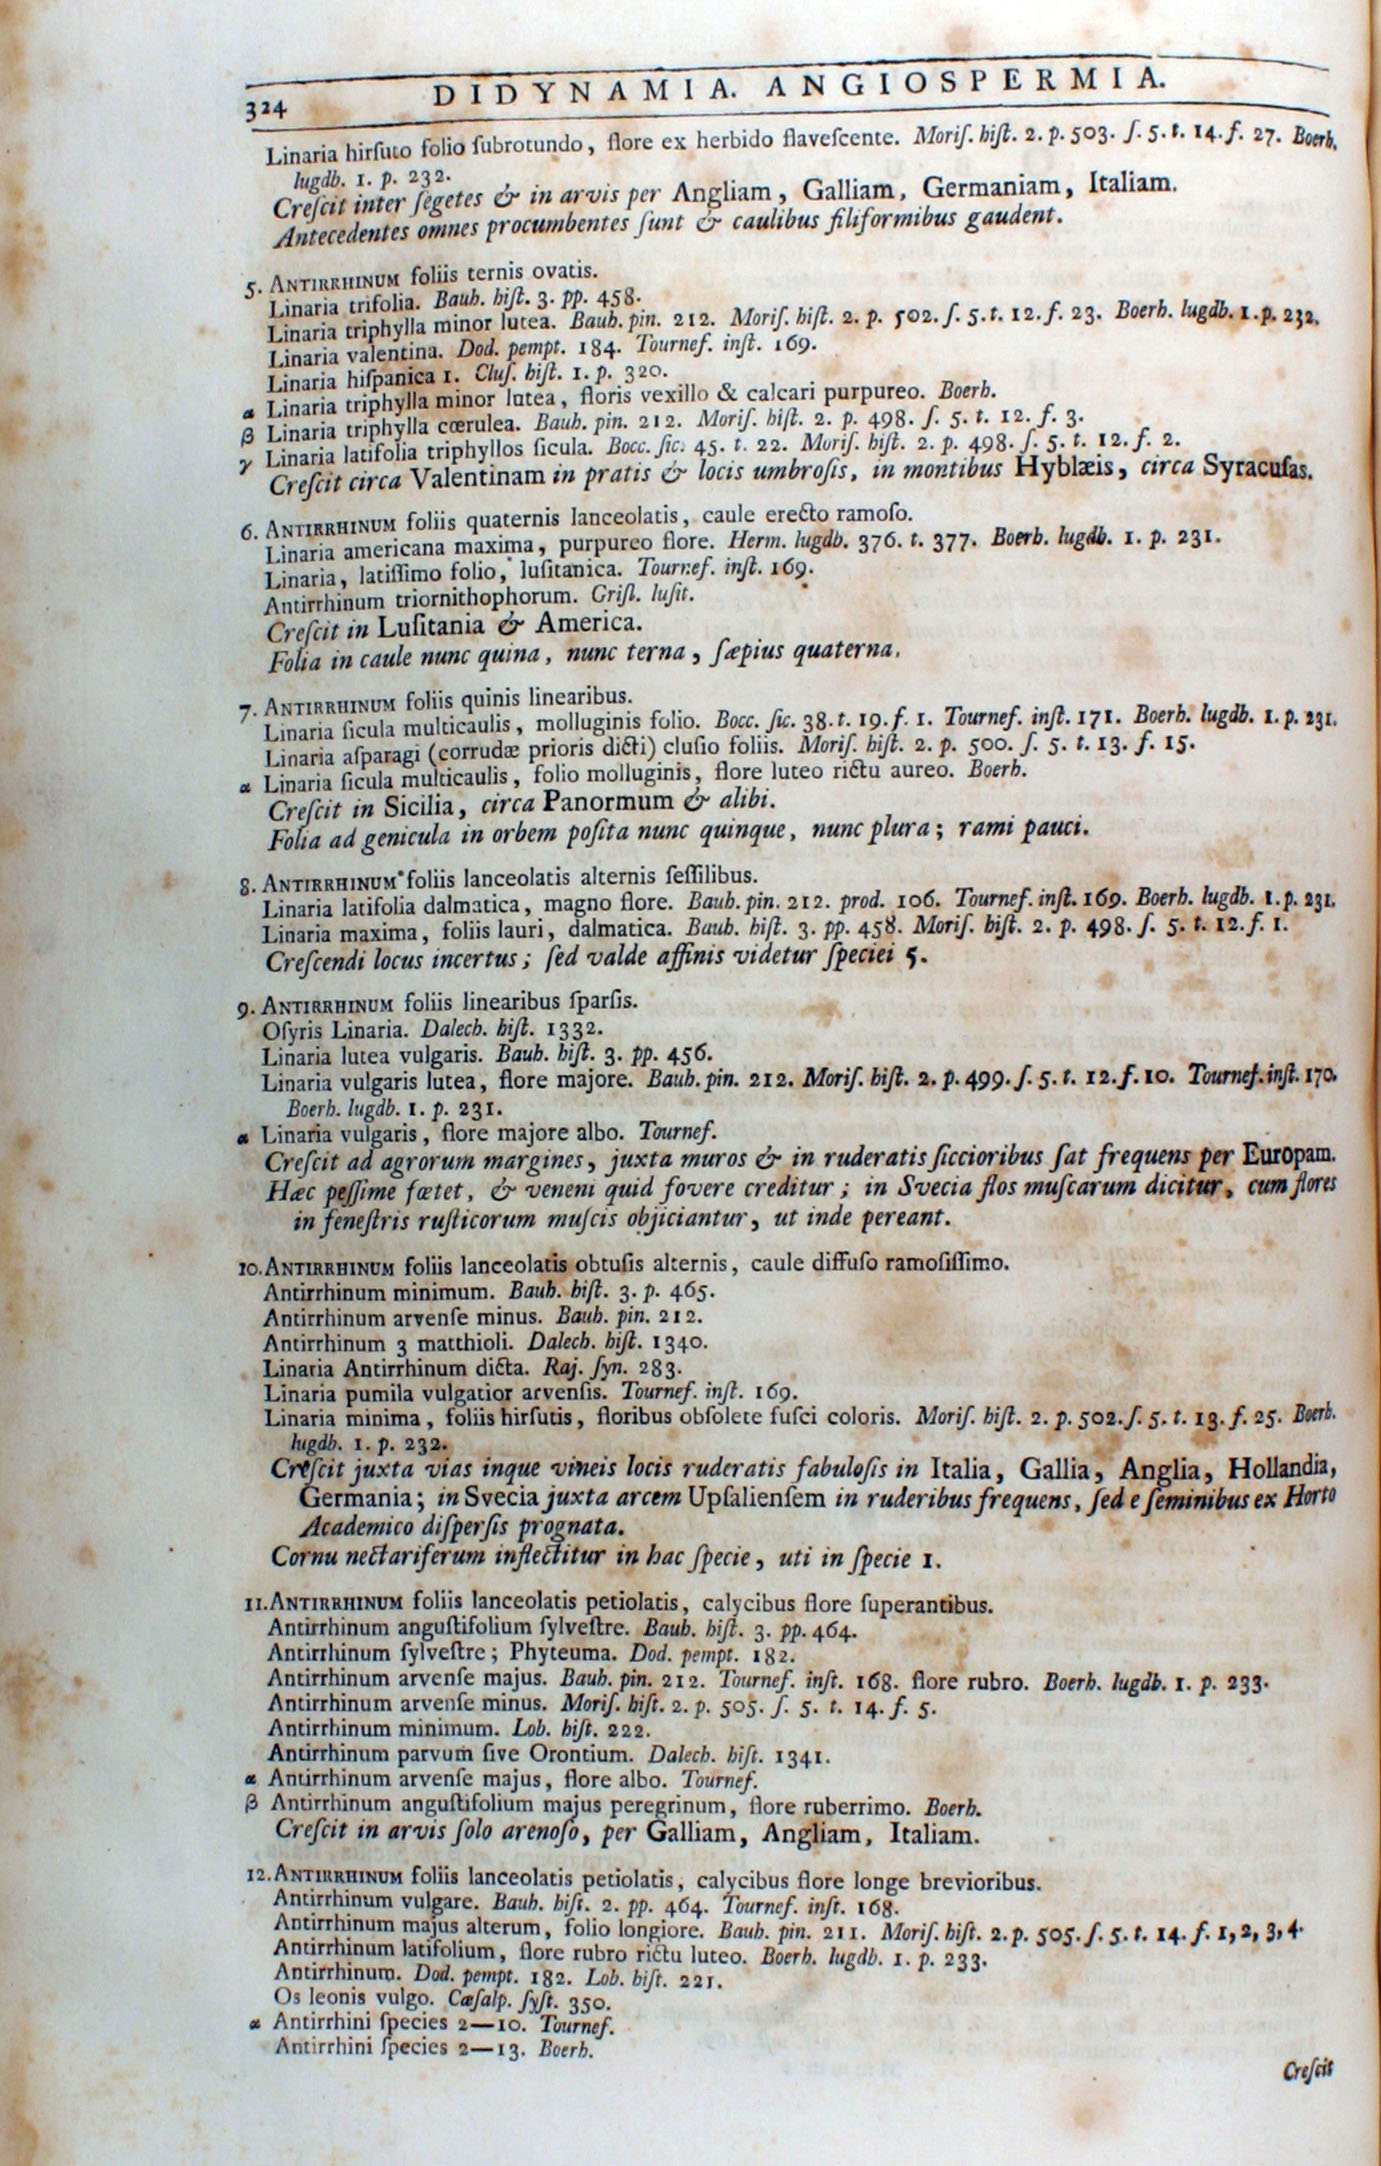 324 DIDYNAMIA. ANGIOSPERMIA.
Linaria hirſuto folio ſubrotundo, flore ex herbido flaveſcente. Moriſ. hiſt. 2. p. 503. ſ. 5. t. 14. f. 27. Boerh.
lugdb. 1. p. 232.
Creſcit inter ſegetes & in arvis per Angliam, Galliam, Germaniam, Italiam.
Antecedentes omnes procumbentes ſunt & caulibus filiformibus gaudent.
5. ANTIRRHINUM foliis ternis ovatis.
Linaria trifolia. Bauh. hiſt. 3. pp. 458.
Linaria triphylla minor lutea. Bauh. pin. 212. Moriſ. hiſt. 2. p. 502. ſ. 5. t. 12. f. 23. Boerh. lugdb. 1. p. 232.
Linaria valentina. Dod. pempt. 184. Tournef. inſt. 169.
Linaria hiſpanica 1. Cluſ. hiſt. 1. p. 320.
α Linaria triphylla minor lutea, floris vexillo & calcari purpureo. Boerh.
β Linaria triphylla cœrulea. Bauh. pin. 212. Moriſ. hiſt. 2. p. 498. ſ. 5. t. 12. f. 3.
γ Linaria latifolia triphyllos ſicula. Bocc. ſic. 45. t. 22. Moriſ. hiſt. 2. p. 498. ſ. 5. t. 12. f. 2.
Creſcit circa Valentinam in pratis & locis umbroſis, in montibus Hyblæis, circa Syracuſas.
6. ANTIRRHINUM foliis quaternis lanceolatis, caule erecto ramoſo.
Linaria americana maxima, purpureo flore. Herm. lugdb. 376. t. 377. Boerh. lugdb. 1. p. 231.
Linaria, latiſſimo folio, luſitanica. Tournef. inſt. 169.
Antirrhinum triornithophorum. Griſl. luſit.
Creſcit in Luſitania & America.
Folia in caule nunc quina, nunc terna, ſæpius quaterna.
7. ANTIRRHINUM foliis quinis linearibus.
Linaria ſicula multicaulis, molluginis folio. Bocc. ſic. 38. t. 19. f. 1. Tournef. inſt. 171. Boerh. lugdb. 1. p. 231.
Linaria aſparagi (corrudæ prioris dicti) cluſio foliis. Moriſ. hiſt. 2. p. 500. ſ. 5. t. 13. f. 15.
α Linaria ſicula multicaulis, folio molluginis, flore luteo rictu aureo. Boerh.
Creſcit in Sicilia, circa Panormum & alibi.
Folia ad genicula in orbem poſita nunc quinque, nunc plura; rami pauci.
8. ANTIRRHINUM foliis lanceolatis alternis ſeſſilibus.
Linaria latifolia dalmatica, magno flore. Bauh. pin. 212. prod. 106. Tournef. inſt. 169. Boerh. lugdb. 1. p. 231.
Linaria maxima, foliis lauri, dalmatica. Bauh. hiſt. 3. pp. 458. Moriſ. hiſt. 2. p. 498. ſ. 5. t. 12. f. 1.
Creſcendi locus incertus; ſed valde affinis videtur ſpeciei 5.
9. ANTIRRHINUM foliis linearibus ſparſis.
Oſyris Linaria. Dalech. hiſt. 1332.
Linaria lutea vulgaris. Bauh. hiſt. 3. pp. 456.
Linaria vulgaris lutea, flore majore. Bauh. pin. 212. Moriſ. hiſt. 2. p. 499. ſ. 5. t. 12. f. 10. Tournef. inſt. 170.
Boerh. lugdb. 1. p. 231.
α Linaria vulgaris, flore majore albo. Tournef.
Creſcit ad agrorum margines, juxta muros & in ruderatis ſiccioribus ſat frequens per Europam.
Hæc peſſime fœtet, & veneni quid fovere creditur; in Svecia flos muſcarum dicitur, cum flores
in feneſtris ruſticorum muſcis objiciantur, ut inde pereant.
10. ANTIRRHINUM foliis lanceolatis obtuſis alternis, caule diffuſo ramoſiſſimo.
Antirrhinum minimum. Bauh. hiſt. 3. p. 465.
Antirrhinum arvenſe minus. Bauh. pin. 212.
Antirrhinum 3 matthioli. Dalech. hiſt. 1340.
Linaria Antirrhinum dicta. Raj. ſyn. 283.
Linaria pumila vulgatior arvenſis. Tournef. inſt. 169.
Linaria minima, foliis hirſutis, floribus obſolete fuſci coloris. Moriſ. hiſt. 2. p. 502. ſ. 5. t. 13. f. 25. Boerh.
lugdb. 1. p. 232.
Creſcit juxta vias inque vineis locis ruderatis ſabuloſis in Italia, Gallia, Anglia, Hollandia,
Germania; in Svecia juxta arcem Upſalienſem in ruderibus frequens, ſed e ſeminibus ex Horto
Academico diſperſis prognata.
Cornu nectariferum inflectitur in hac ſpecie, uti in ſpecie 1.
11. ANTIRRHINUM foliis lanceolatis petiolatis, calycibus flore ſuperantibus.
Antirrhinum anguſtifolium ſylveſtre. Bauh. hiſt. 3. pp. 464.
Antirrhinum ſylveſtre; Phyteuma. Dod. pempt. 182.
Antirrhinum arvenſe majus. Bauh. pin. 212. Tournef. inſt. 168. flore rubro. Boerh. lugdb. 1. p. 233.
Antirrhinum arvenſe minus. Moriſ. hiſt. 2. p. 505. ſ. 5. t. 14. f. 5.
Antirrhinum minimum. Lob. hiſt. 222.
Antirrhinum parvum ſive Orontium. Dalech. hiſt. 1341.
α Antirrhinum arvenſe majus, flore albo. Tournef.
β Antirrhinum anguſtifolium majus peregrinum, flore ruberrimo. Boerh.
Creſcit in arvis ſolo arenoſo, per Galliam, Angliam, Italiam.
12. ANTIRRHINUM foliis lanceolatis petiolatis, calycibus flore longe brevioribus.
Antirrhinum vulgare. Bauh. hiſt. 2. pp. 464. Tournef. inſt. 168.
Antirrhinum majus alterum, folio longiore. Bauh. pin. 211. Moriſ. hiſt. 2. p. 505. ſ. 5. t. 14. f. 1, 2, 3, 4.
Antirrhinum latifolium, flore rubro rictu luteo. Boerh. lugdb. 1. p. 233.
Antirrhinum. Dod. pempt. 182. Lob. hiſt. 221.
Os leonis vulgo. Cæſalp. ſyſt. 350.
α Antirrhini ſpecies 2—10. Tournef.
Antirrhini ſpecies 2—13. Boerh.
Creſcit